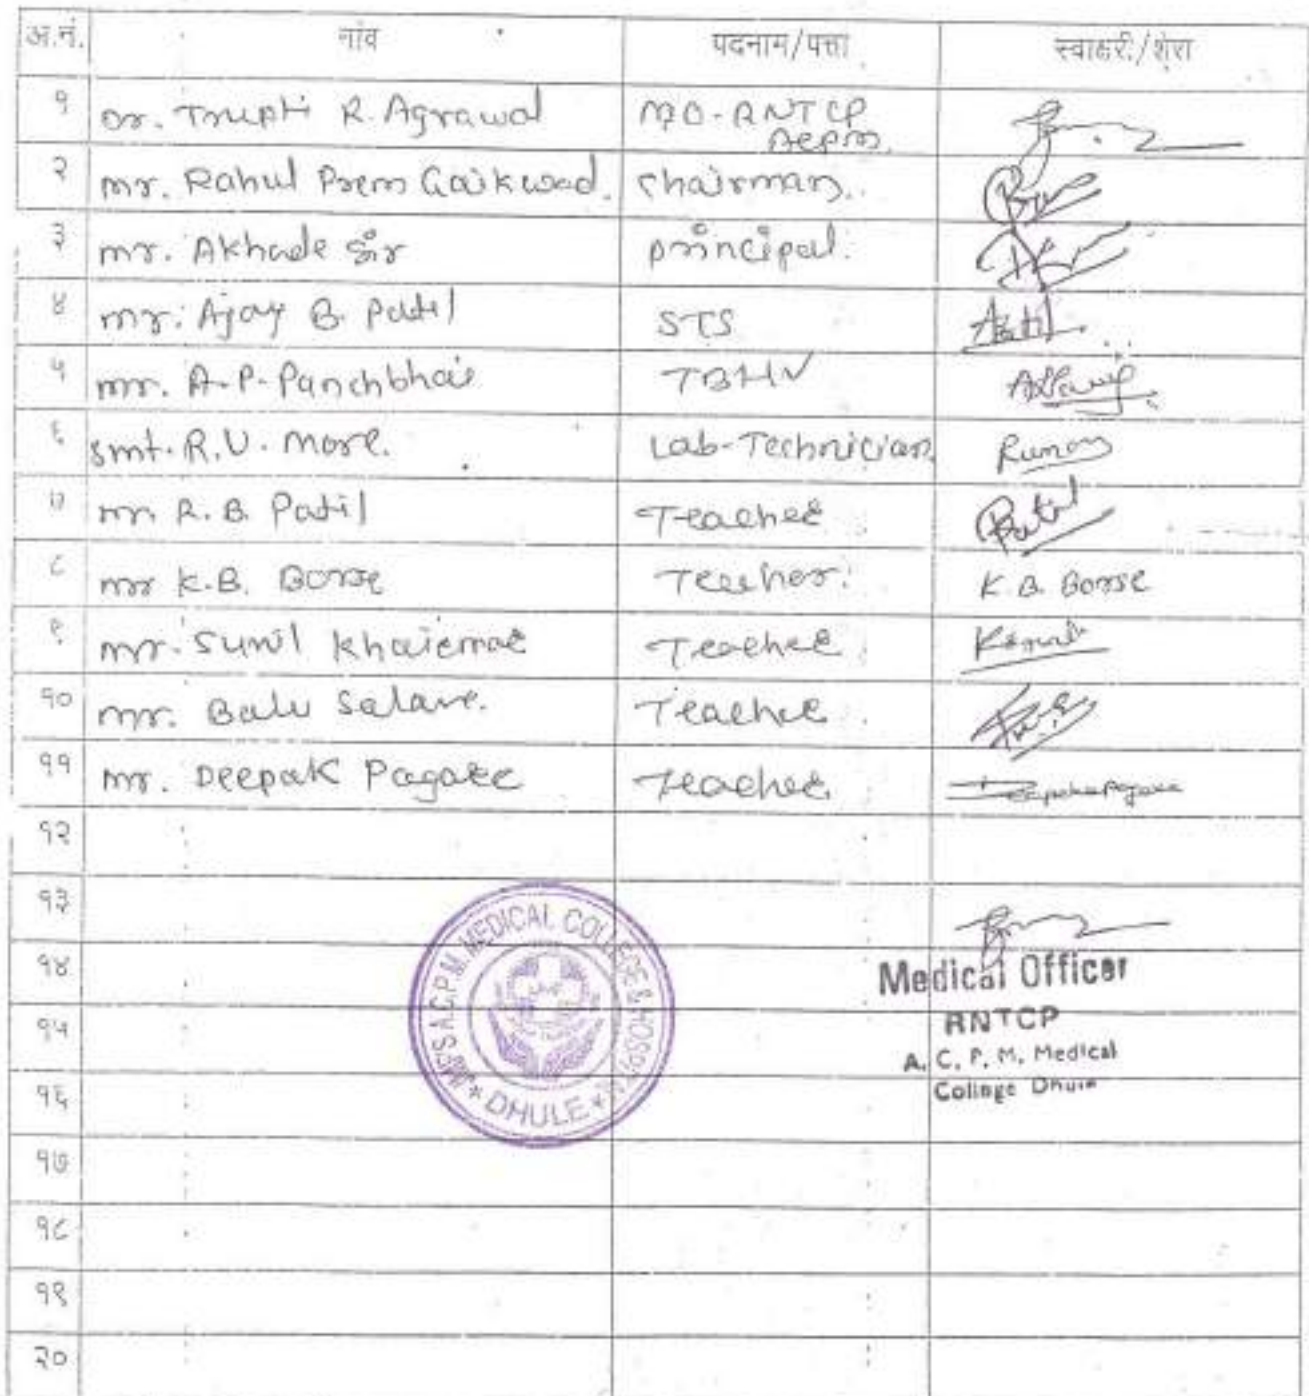 अ.नं. नांव पदनाम/पत्ता स्वाक्षरी/शेरा
१ Dr. Trupti R. Agrawal MO-RNTCP
ACPM.
२ mr. Rahul Prem Gaikwad. Chairman.
३ mr. Akhade Sir principal.
४ mr. Ajay B. Patil STS
५ mr. A.P. Panchbhai TBHV
६ smt. R.U. More. Lab-Technician
७ mr. R.B. Patil Teacher Patil
८ mr K.B. Borse Teacher. K.B. Borse
९ mr. Sunil Khairnar Teacher
१० mr. Balu Salave. Teacher
११ mr. Deepak Pagare Teacher
१२
१३
१४
१५
१६
१७
१८
१९
२०
S A.C.P.M. MEDICAL COLLEGE & HOSPITAL
* DHULE *
Medical Officer
RNTCP
A. C. P. M. Medical
College Dhule